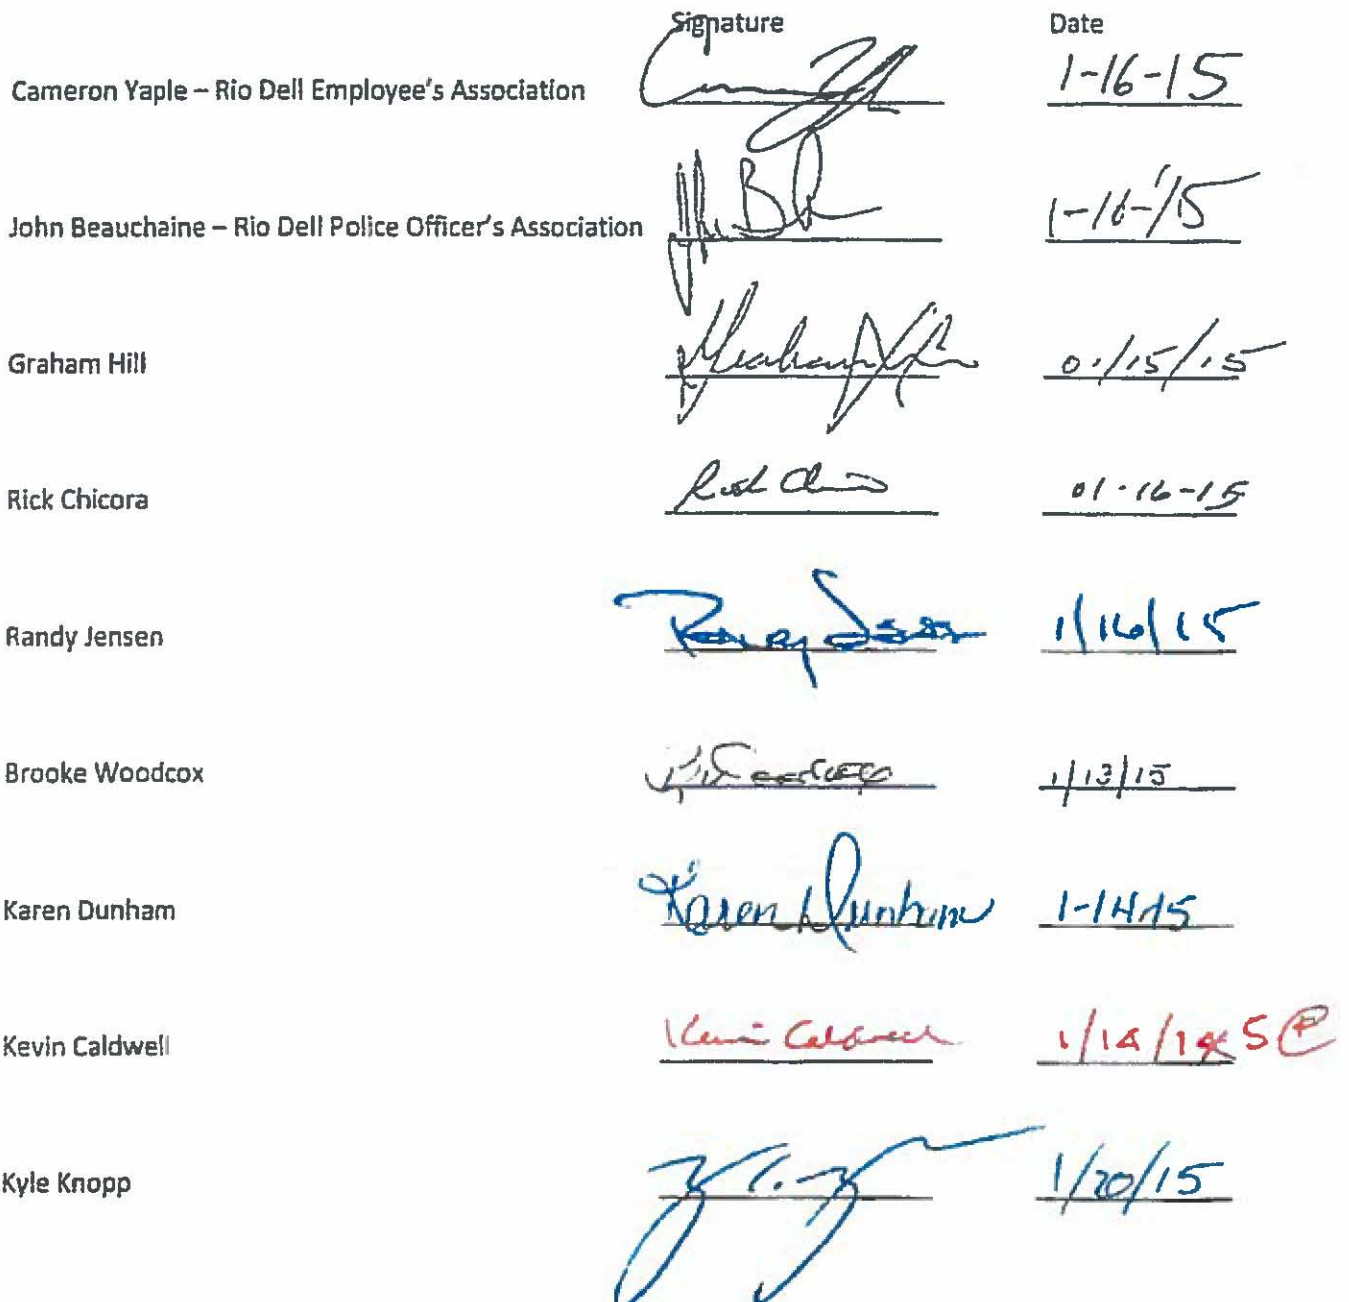 Signature Date
Cameron Yaple – Rio Dell Employee's Association 1-16-15
John Beauchaine – Rio Dell Police Officer's Association 1-16-15
Graham Hill 01/15/15
Rick Chicora 01-16-15
Randy Jensen Randy Jensen 1/16/15
Brooke Woodcox 1/13/15
Karen Dunham Karen Dunham 1-14-15
Kevin Caldwell Kevin Caldwell 1/14/15
Kyle Knopp 1/20/15